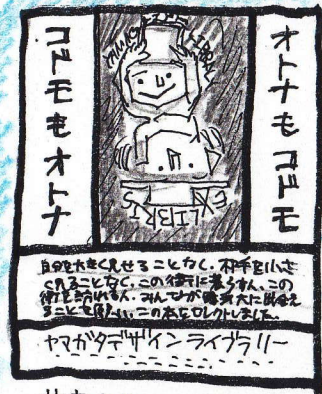 オトナもコドモ
コドモもオトナ
EX
LIBRIS
自分を大きく見せることなく、相手を小さ
く見ることなく、この街に暮らす人、この
街を訪れる人、みんなが等身大に出会え
ることを願い、この本をセレクトしました。
ヤマガタデザイン ライブラリー